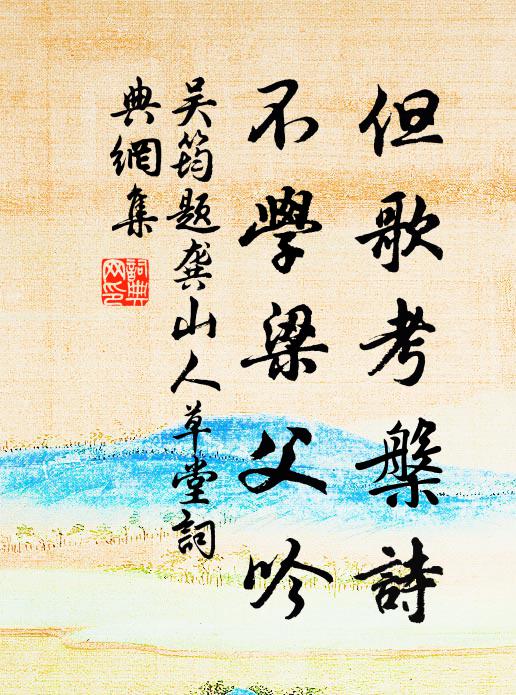 但歌考槃詩
不學梁父吟
吴筠题龚山人草堂詞
典網集
詞典網印